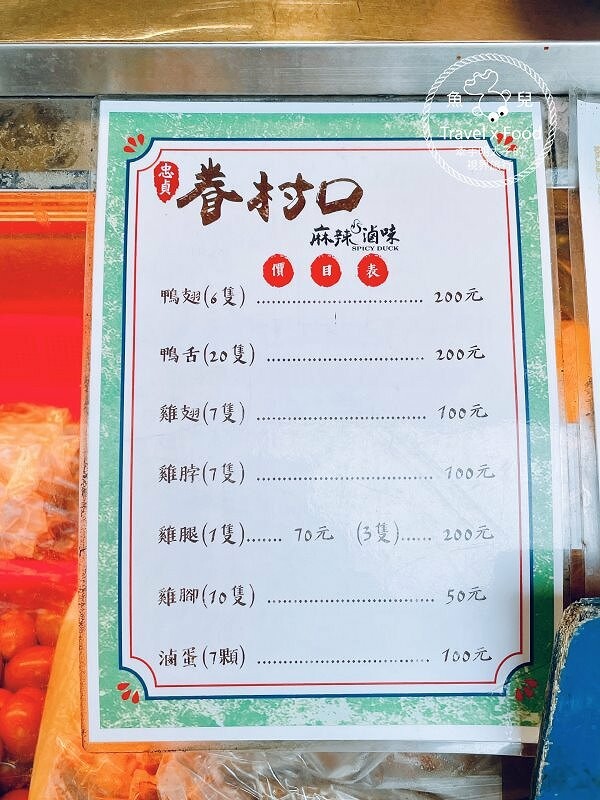 魚 兒
Travel x Food
忠貞
眷村口
麻辣滷味
SPICY DUCK
價目表
鴨翅(6隻) 200元
鴨舌(20隻) 200元
雞翅(7隻) 100元
雞脖(7隻) 100元
雞腿(1隻)....... 70元 (3隻)...... 200元
雞腳(10隻) 50元
滷蛋(7顆) 100元